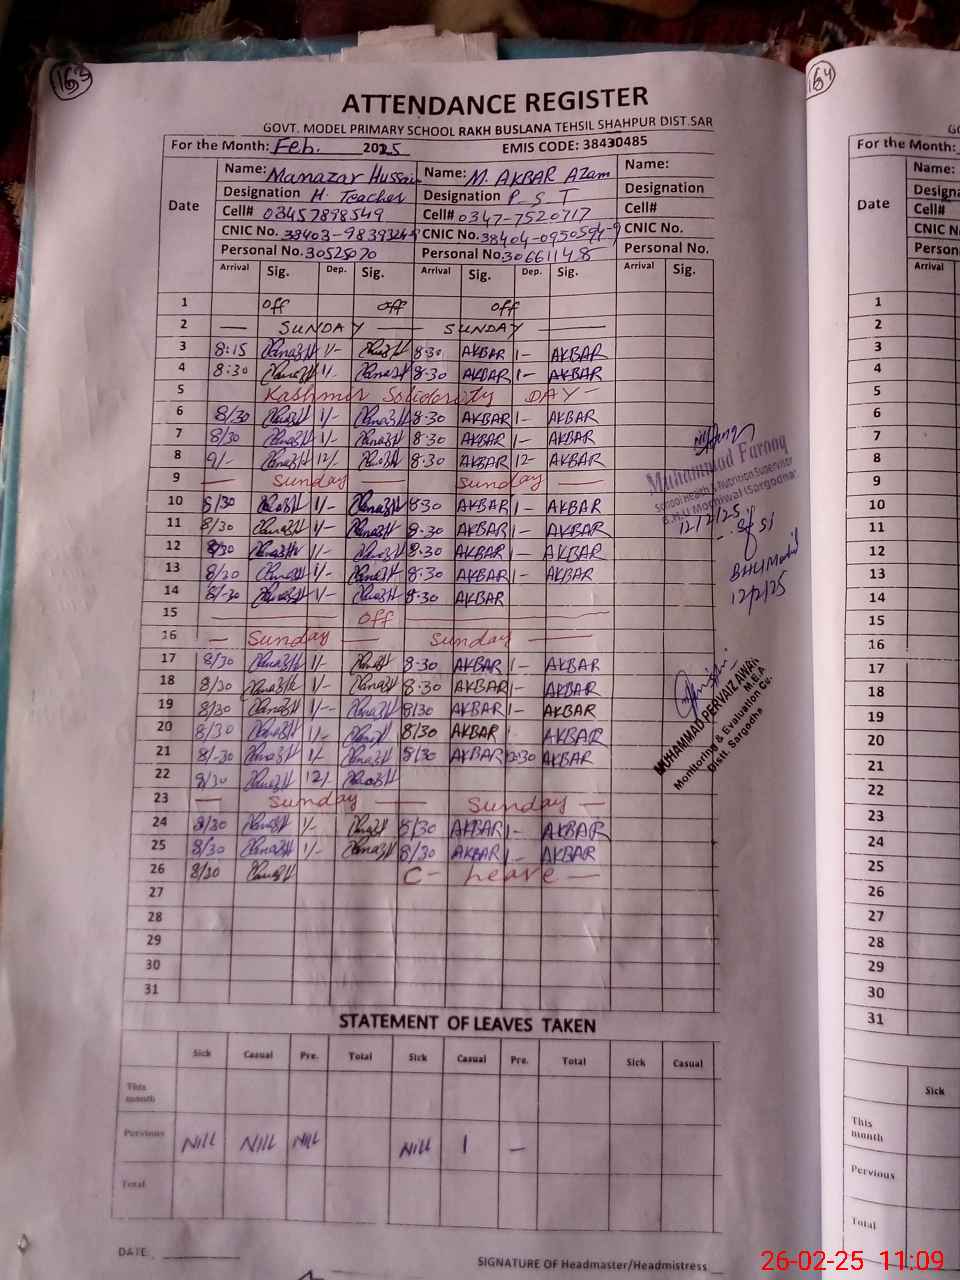 163
ATTENDANCE REGISTER
GOVT. MODEL PRIMARY SCHOOL RAKH BUSLANA TEHSIL SHAHPUR DIST.SAR
For the Month: Feb. 2025 EMIS CODE: 38430485
Name: Manazar Hussain Name: M. AKBAR Azam Name:
Designation H. Teacher Designation P. S. T Designation
Date Cell# 03457898549 Cell# 0347-7520717 Cell#
CNIC No. CNIC No. CNIC No.
Personal No. 30525070 Personal No. 30661148 Personal No.
Arrival Sig. Dep. Sig. Arrival Sig. Dep. Sig. Arrival Sig.
1 off off off
2 — SUNDAY — SUNDAY —
3 8:15 1/- 8-30 AKBAR 1- AKBAR
4 8:30 1/- 8-30 AKBAR 1- AKBAR
5 Kashmir Solidority DAY
6 8/30 1/- 8-30 AKBAR 1- AKBAR
7 8/30 1/- 8-30 AKBAR 1- AKBAR
8 9/- 12/- 8-30 AKBAR 12- AKBAR
9 — Sunday — Sunday —
10 8/30 1/- 8-30 AKBAR 1- AKBAR
11 8/30 1/- 8-30 AKBAR 1- AKBAR
12 8/30 1/- 8-30 AKBAR 1- AKBAR
13 8/30 1/- 8-30 AKBAR 1- AKBAR
14 8/-30 1/- 8-30 AKBAR
15 — off —
16 — Sunday — Sunday —
17 8/30 1/- 8-30 AKBAR 1- AKBAR
18 8/30 1/- 8-30 AKBAR 1- AKBAR
19 8/30 1/-- 8/30 AKBAR 1- AKBAR
20 8/30 1/- 8/30 AKBAR 1- AKBAR
21 8/-30 1/- 8/30 AKBAR AKBAR
22 8/30 12/-
23 — Sunday — Sunday —
24 8/30 1/- 8/30 AKBAR 1- AKBAR
25 8/30 1/- 8/30 AKBAR 1- AKBAR
26 8/30 C- Leave —
27
28
29
30
31
Muhammad Farooq
School Health & Nutrition Supervisor
B.H.U Mochiwal (Sargodha)
12/2/25
12/2/25
MUHAMMAD PERVAIZ AWAN
M.E.A
Monitoring & Evaluation Cc.
Distt. Sargodha
STATEMENT OF LEAVES TAKEN
Sick Casual Pre. Total Sick Casual Pre. Total Sick Casual
This month
Pervious Nill Nill Nill Nill 1 —
Total
DATE: SIGNATURE OF Headmaster/Headmistress
164
For the Month:
Name:
Date
Cell#
CNIC N
Person
Arrival
1
2
3
4
5
6
7
8
9
10
11
12
13
14
15
16
17
18
19
20
21
22
23
24
25
26
27
28
29
30
31
Sick
This month
Pervious
Total
26-02-25 11:09